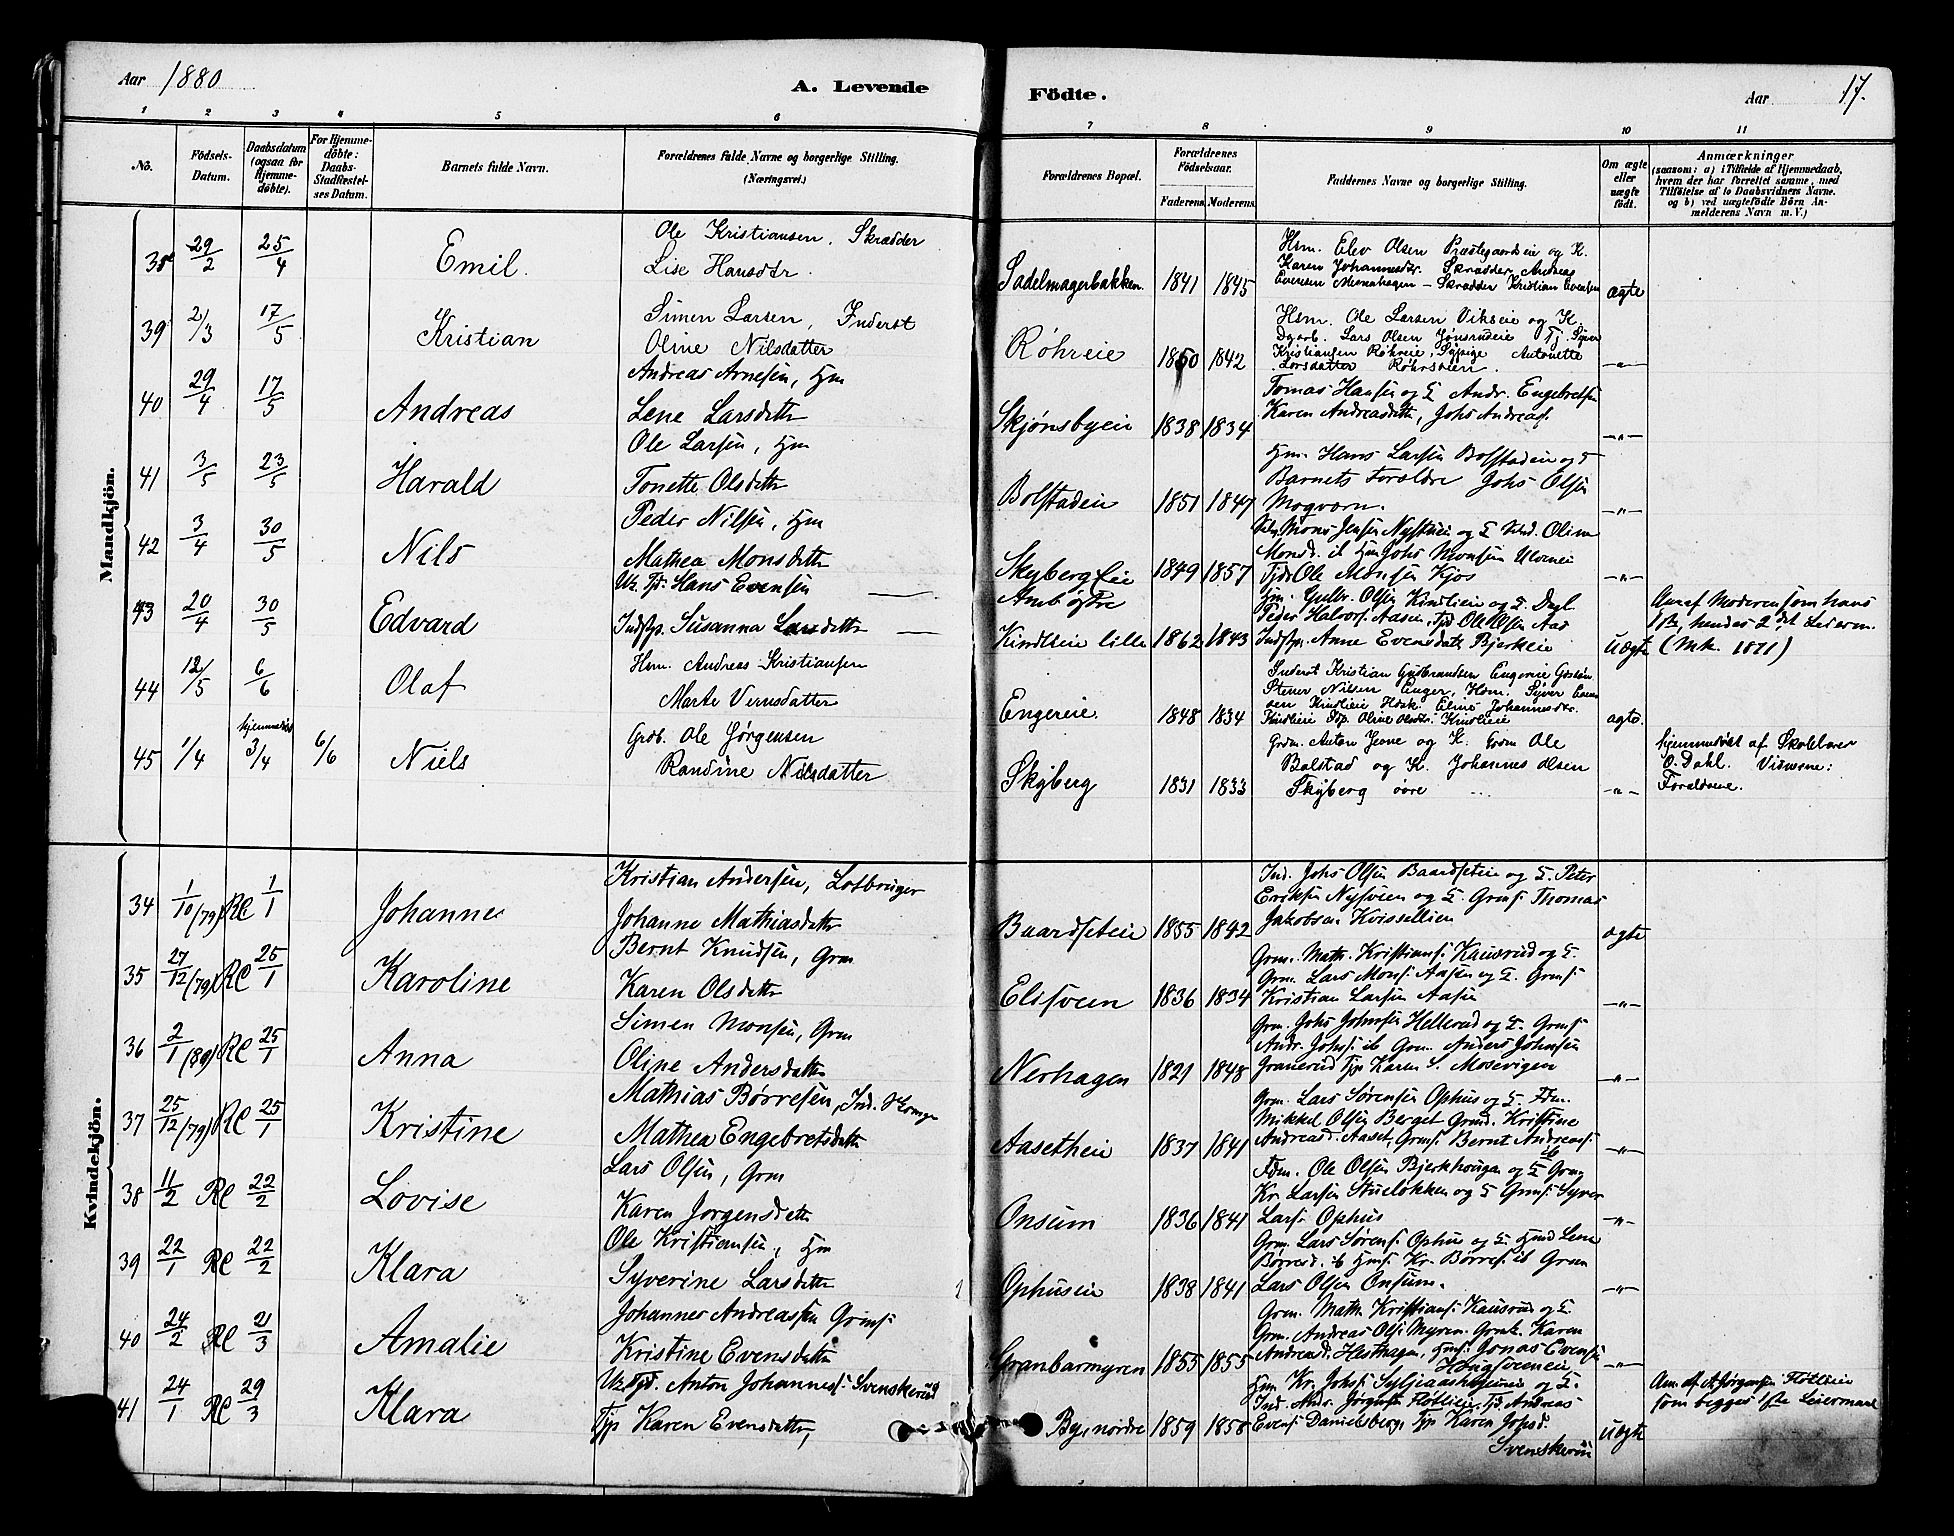 Aar 1880
A. Levende
Födte.
Aar
17.
1 2 3 4 5 6 7 8 9 10 11
No.
Födsels-Datum.
Daabsdatum (ogsaa for Hjemme-döbte).
For Hjemme-döbte: Daabs-Stadfæstel-ses Datum.
Barnets fulde Navn.
Forældrenes fulde Navne og borgerlige Stilling.
(Næringsvei.)
Forældrenes Bopæl.
Forældrenes Födselsaar.
Faderens. Moderens.
Faddernes Navne og borgerlige Stilling.
Om ægte eller uægte födt.
Anmærkninger
(saasom: a) i Tilfælde af Hjemmedaab,
hvem der har forrettet samme, med
Tilföielse af to Daabsvidners Navne.
og b) ved uægtefödte Börn An-
melderens Navn m. V.)
Mandkjön.
38 29/2 25/4 Emil.
Ole Kristiansen, Skrædder
Lise Hansdtr.
Sadelmagerbakken. 1841 1845
Hsm. Elev Olsen Præstegaardseie og K.
Karen Johannesdtr. Skrædder Andreas
Evensen - Skrædder Kristian Evensen
ægte
39 2/3 17/5 Kristian
Simen Larsen, Inderst
Oline Nilsdatter
Røhreie 1850 1842
Hsm. Ole Larsen Vikseie og K.
Dgarb. Lars Olsen Jønsrudeie Tj. Syver
Kristiansen Røhreie, Sypige Antonette
Larsdatter
-"-
40 29/4 17/5 Andreas
Andreas Arnesen, Hm
Lene Larsdatter
Skjønsbyeie 1838 1834
Tomas Hansen og K Andr. Engebretsen
Karen Andreasdatter, Johs Andreas.
-"-
41 3/5 23/5 Harald
Ole Larsen, Hm
Tonette Olsdatter
Bolstadeie 1851 1847
Hm. Hans Larsen Bolstadeie og K
Barnets Forældre Johs Olsen
Mogvorn.
-"-
42 3/4 30/5 Nils
Peder Nilsen, Hm
Mathea Monsdatter
Skybergseie 1849 1857
Mons Jensen Nystueie og K Oline
Monsd. ib Hm Johs Monsen Ulvneie
Tjdr Ole Monsen Kjos
-"-
43 20/4 30/5 Edvard
Uk. Tjd. Hans Evensen
Indstp. Susanna Larsdatter
Kindlieie lille 1862 1843
Hm. Gulbr. Olsen Kindlieie og K. Dagl.
Peder Halvors. Aasen, Tjd Ole Olsen Aas
Indstp. Anne Evensdatter Bjerkeie
Uægte
Anm af Moderen som hans
1ste, hendes 2det Leierm.
(Mk. 1871)
44 12/5 6/6 Olaf
Hsm. Andreas Kristiansen
Marte Vernsdatter
Engereie. 1848 1834
Inderst Kristian Gudbrandsen Engereie
Stener Nilsen Enger, Hsm. Syver Even-
sen Kindlieie Hsk. Eline Johannesdtr.
Kindlieie Pige Oline Olsdtr. Kindlieie
ægte.
45 1/4 hjemmedøbt 3/4 6/6 Niels
Grdb. Ole Jørgensen
Randine Nilsdatter
Skyberg 1831 1833
Grdm. Anton og K. Grdm Ole
Bolstad og K. Johannes Olsen
Skyberg øvre
-"-
hjemmedøbt af Skolelærer
O. Dahl. Vidnerne:
Forældrene.
Kvindekjön.
34 1/10 (79) Re 1/1 Johanne
Kristian Andersen, Lotbruger
Johanne Mathiasdatter
Baardseteie 1855 1842
Ind. Johs Olsen Baardseteie og K. Peter
Eriksen Nysveen og K. Grms Thomas
Jakobsen Kvissellien
ægte
35 27/12 (79) Re 25/1 Karoline
Bernt Knudsen, Grm
Karen Olsdatter
Elisveen 1836 1834
Grm. Math. Kristians. Kausrud og K.
Grm. Lars Mons. Aasen og K. Grms.
Kristian Larsen Aasen
-"-
36 2/1 (80) Re 25/1 Anna
Simen Monsen, Grm
Oline Andersdatter
Nerhagen 1821 1848
Grm. Johs Johnsen Hellerud og K. Grms.
Andr. Johs. ib Grm. Anders Johnsen
Granerud Tjp Karen S. Mosevigen
-"-
37 25/12 (79) Re 25/1 Kristine
Mathias Børresen, Ind.
Mathea Engebretsdatter
Aasetheie 1837 1841
Grm. Lars Sørensen Ophus og K.
Mikkel Olsen Berget Grmd. Kristine
Andreasd. Aaset, Grms. Bernt Andreas. ib
-"-
38 11/2 Re 22/2 Lovise
Lars Olsen, Grm
Karen Jørgensdatter
Onsum 1836 1841
Ole Olsen Bjerkhougen og K Grm
Kr. Larsen Stuelökken og K Grms. Syver
Lars. Ophus
-"-
39 22/1 Re 22/2 Klara
Ole Kristiansen, Hm
Syverine Larsdatter
Ophuseie 1838 1841
Grm. Lars Sørens. Ophus og K Hmd Lene
Børresd. ib Hms. Kr. Børres. ib Grm
Lars Olsen Onsum.
-"-
40 24/2 Re 21/3 Amalie
Johannes Andreassen Grms.
Kristine Evensdatter
Granbarmyren 1855 1855
Grm. Math. Kristians. Kausrud og K.
Grm. Andreas Ols. Myren. Grmk. Karen
Andreasd. Hesthagen, Hms. Jonas Evensen
Haugsveeneie
-"-
41 24/1 Re 29/3 Klara
Uk. Tjd. Anton Johanness. Svenskerud
Tjp Karen Evensdatter,
By, nordre 1859 1858
Hm Kr. Johs. og K.
Ind. Andr. Jørgensen Fløtlieie, Tjd. Andreas
Evens. Danielsberg, Tjp Karen Johsd.
Svenskerud
Uægte
Anm. af A. Jørgensen Fløtlieie
som begges 1ste Leiermaal